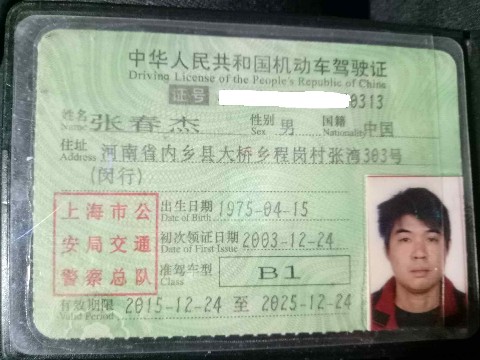 中华人民共和国机动车驾驶证
Driving License of the People's Republic of China
证号 0313
姓名 Name 张春杰 性别 Sex 男 国籍 Nationality 中国
住址 Address 河南省内乡县大桥乡程岗村张湾303号
(闵行)
上海市公安局交通警察总队
出生日期 Date of Birth 1975-04-15
初次领证日期 Date of First Issue 2003-12-24
准驾车型 Class B1
有效期限 Valid Period 2015-12-24 至 2025-12-24